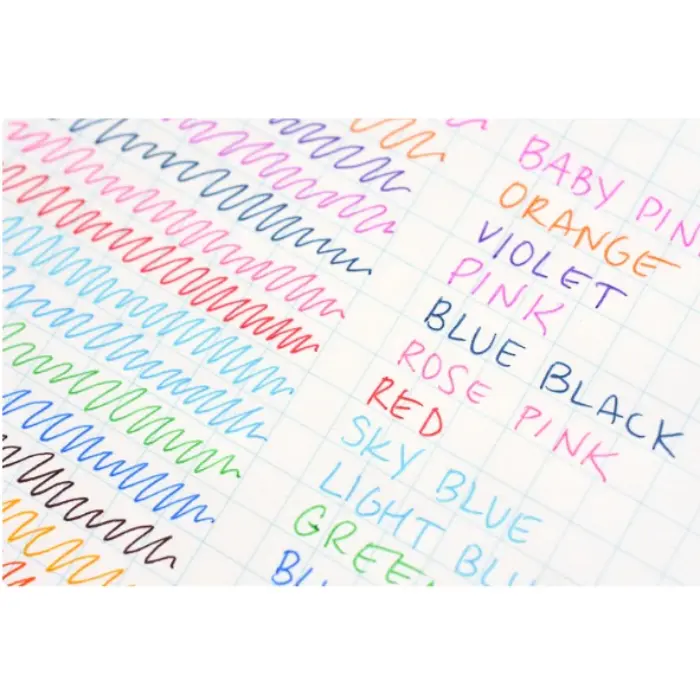 BABY PIN
ORANGE
VIOLET
PINK
BLUE BLACK
ROSE PINK
RED
SKY BLUE
LIGHT BLU
GREE
BL